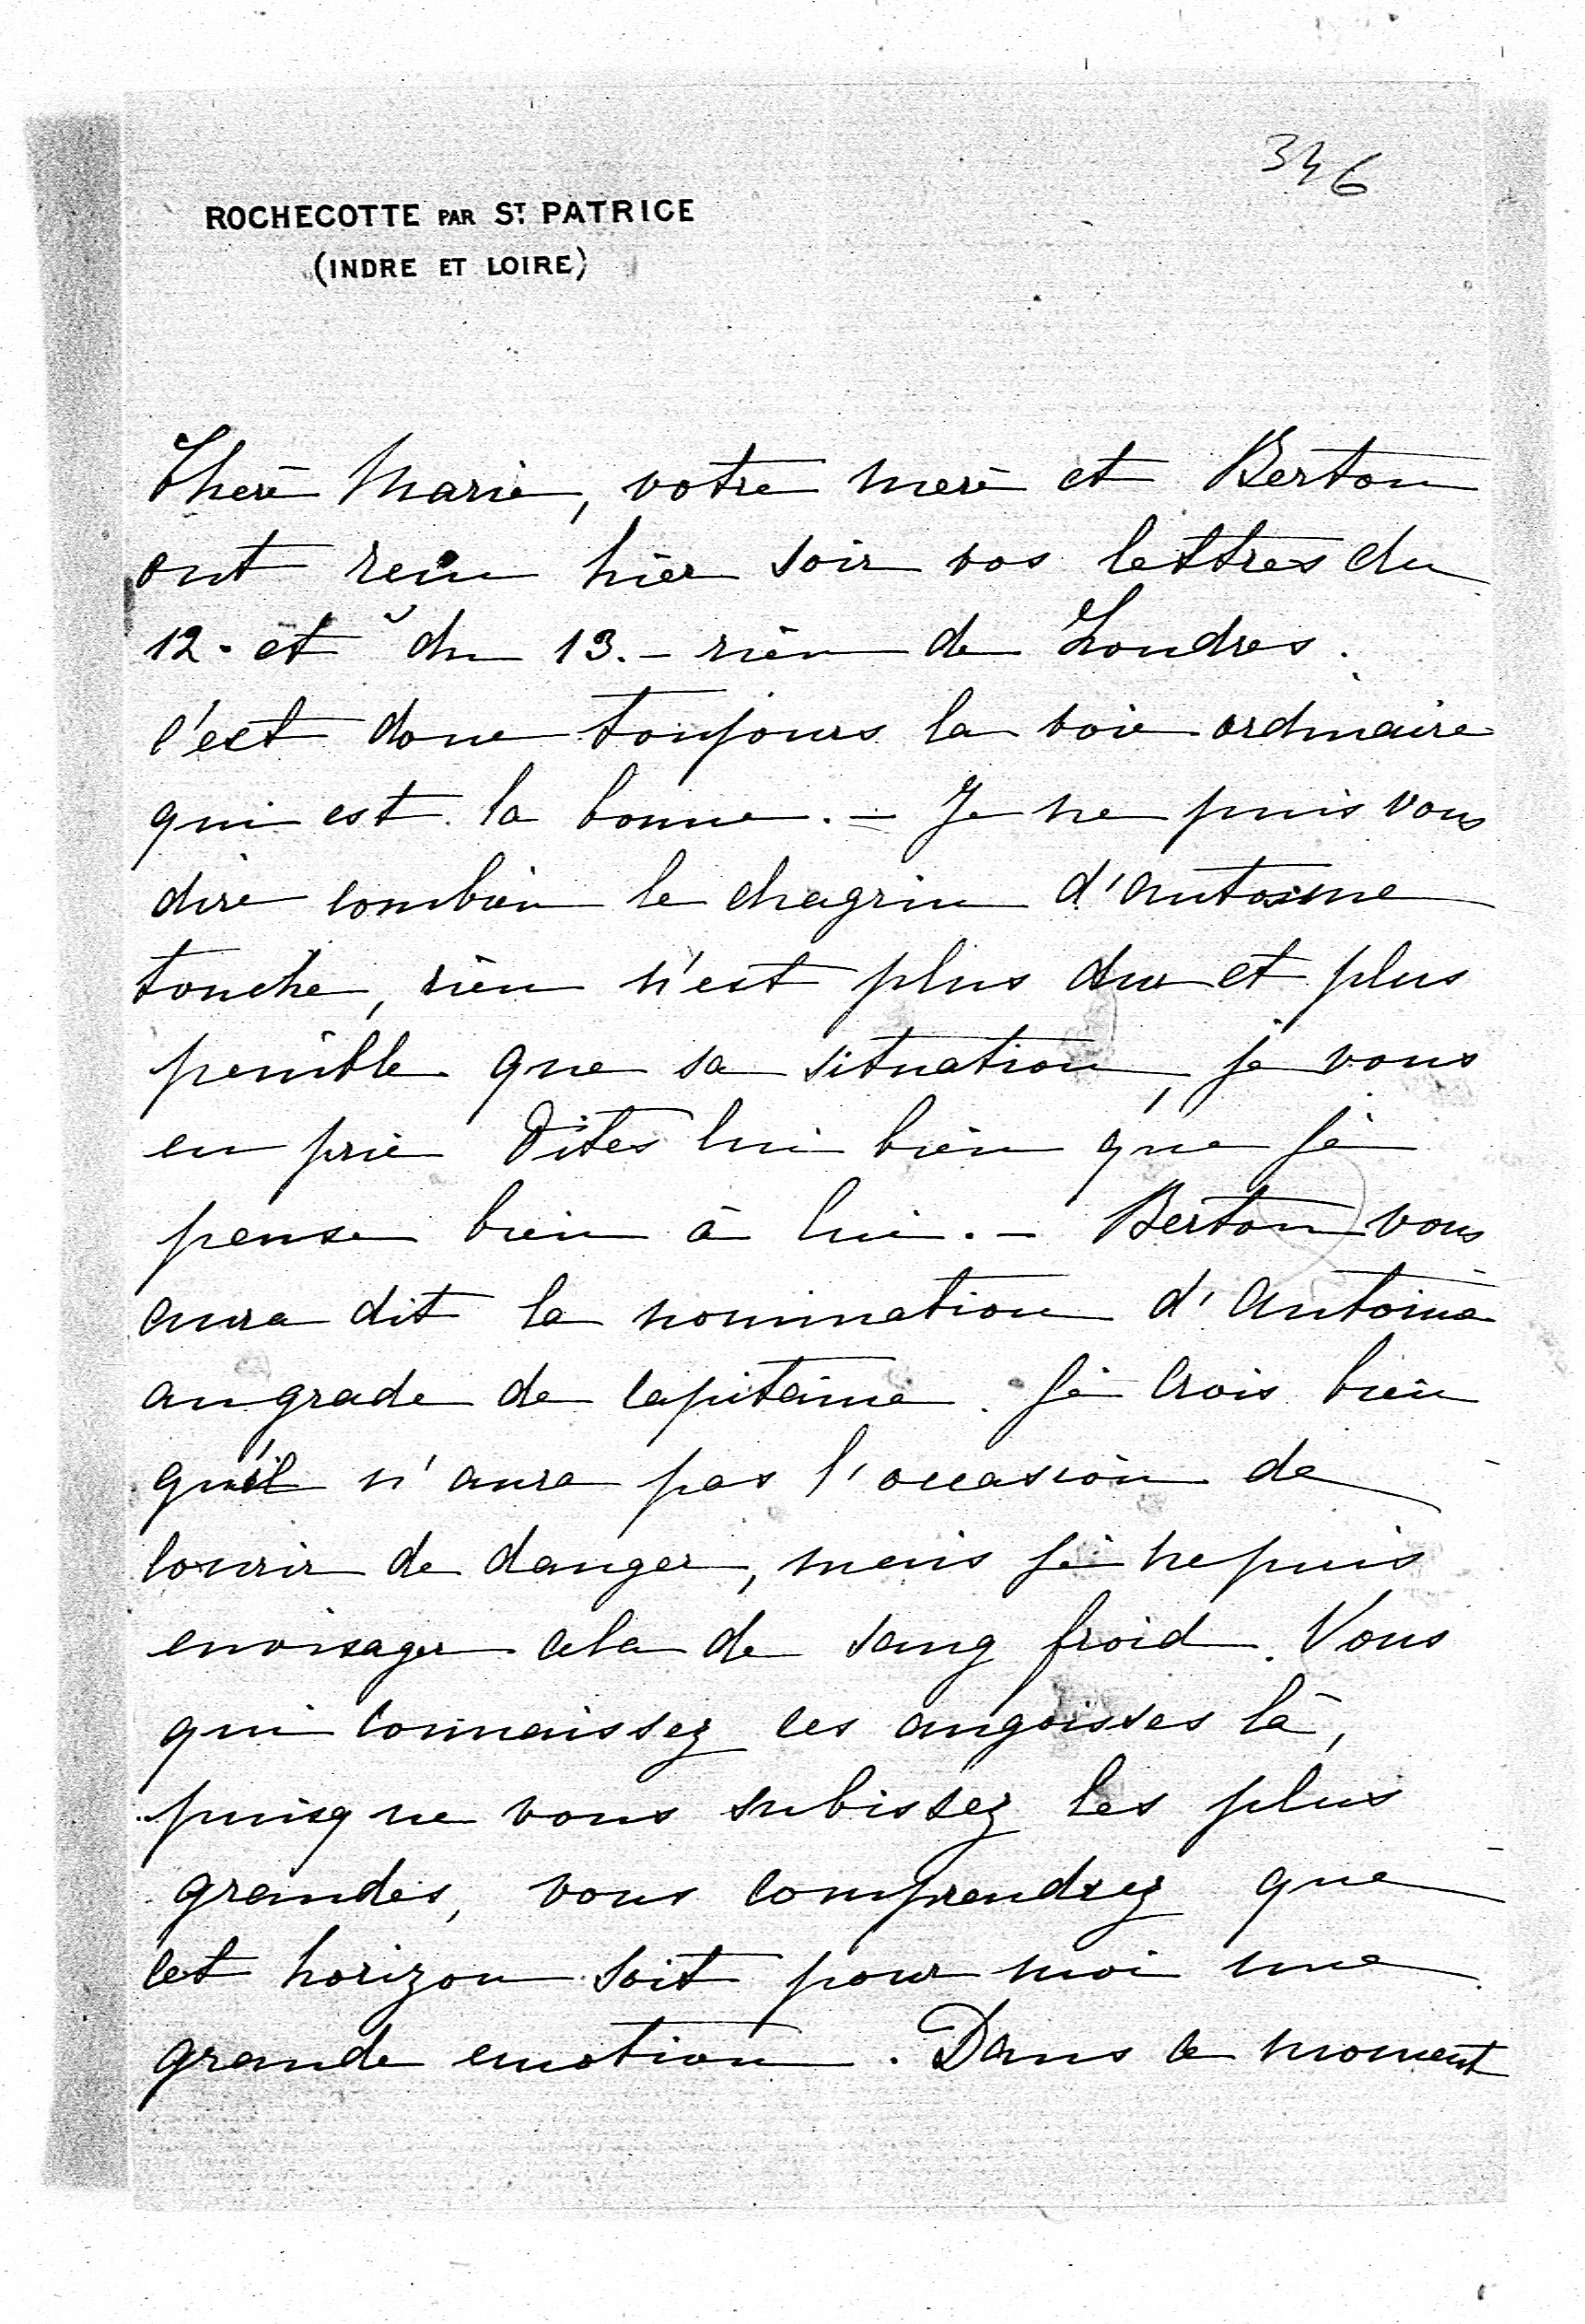 346
ROCHECOTTE PAR ST PATRICE
(INDRE ET LOIRE)
Chère Marie, votre mère et Berton
ont reçu hier soir vos lettres du
12. et du 13. – rien de Londres.
c'est donc toujours la voie ordinaire
qui est la bonne. – Je ne puis vous
dire combien le chagrin d'Antoine
touche, rien n'est plus dur et plus
penible que sa situation, je vous
en prie Dites lui bien que je
pense bien à lui. – Berton vous
aura dit la nomination d'Antoine
au grade de capitaine. Je crois bien
qu'il n'aura pas l'occasion de
courir de danger, mais je ne puis
envisager cela de sang froid. Vous
qui connaissez ces angoisses là,
puisque vous subissez les plus
grandes, vous comprendrez que
cet horizon soit pour moi une
grande emotion. Dans ce moment